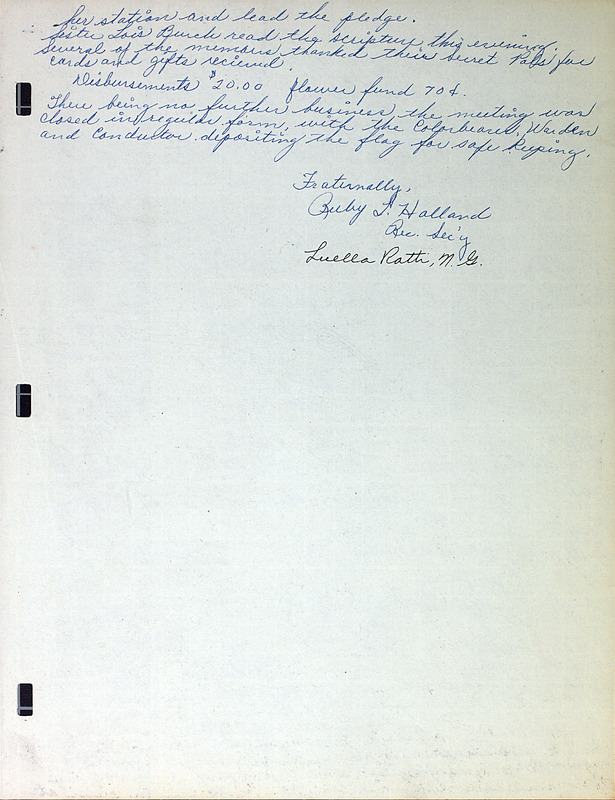 her station and lead the pledge.
Sister Lois Burch read the scripture this evening.
Several of the members thanked their secret Pals for
cards and gifts recieved.
Disbursements $20.00 flower fund 70¢.
There being no further business, the meeting was
closed in regular form with the Colorbearer, Warden
and Conductor depositing the flag for safe keeping.
Fraternally,
Ruby I. Holland
Rec. Sec'y
Luella Rath, N.G.